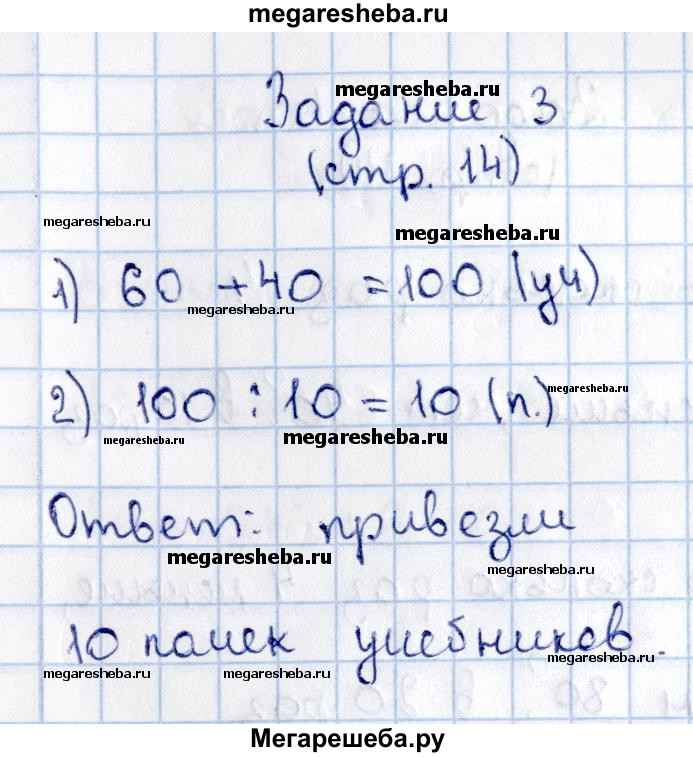 megaresheba.ru
megaresheba.ru
Задание 3
(стр. 14)
megaresheba.ru
megaresheba.ru
1) 60 + 40 = 100 (уч)
megaresheba.ru
2) 100 : 10 = 10 (п.)
megaresheba.ru
megaresheba.ru
megaresheba.ru
Ответ: привезли
megaresheba.ru
megaresheba.ru
10 пачек учебников.
megaresheba.ru
megaresheba.ru
megaresheba.ru
Мегарешеба.ру